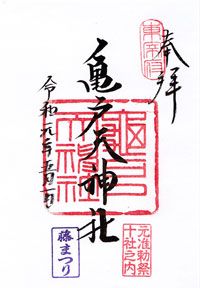 奉拝
東宰府
亀戸天神社
亀戸天神社
令和元年五月一日
元准勅祭
十社之内
藤まつり